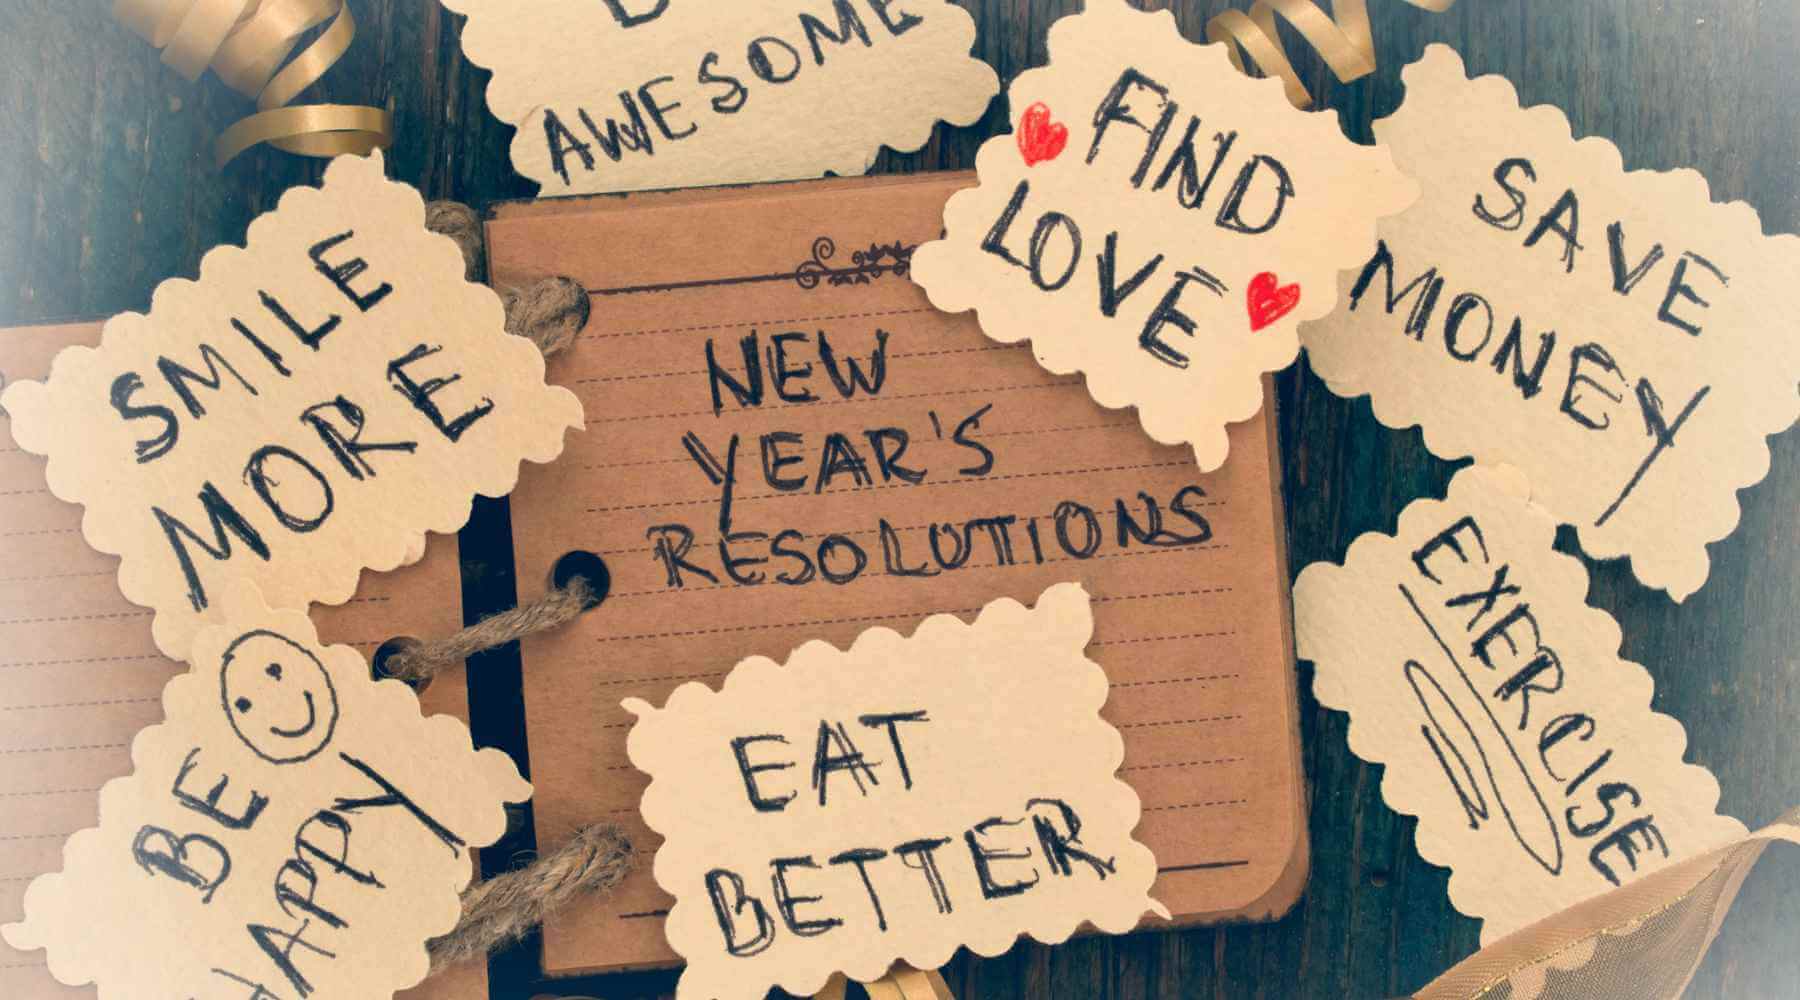 AWESOME
FIND
LOVE
SAVE
MONEY
SMILE
MORE
NEW
YEAR'S
RESOLUTIONS
EXERCISE
BE
HAPPY
EAT
BETTER